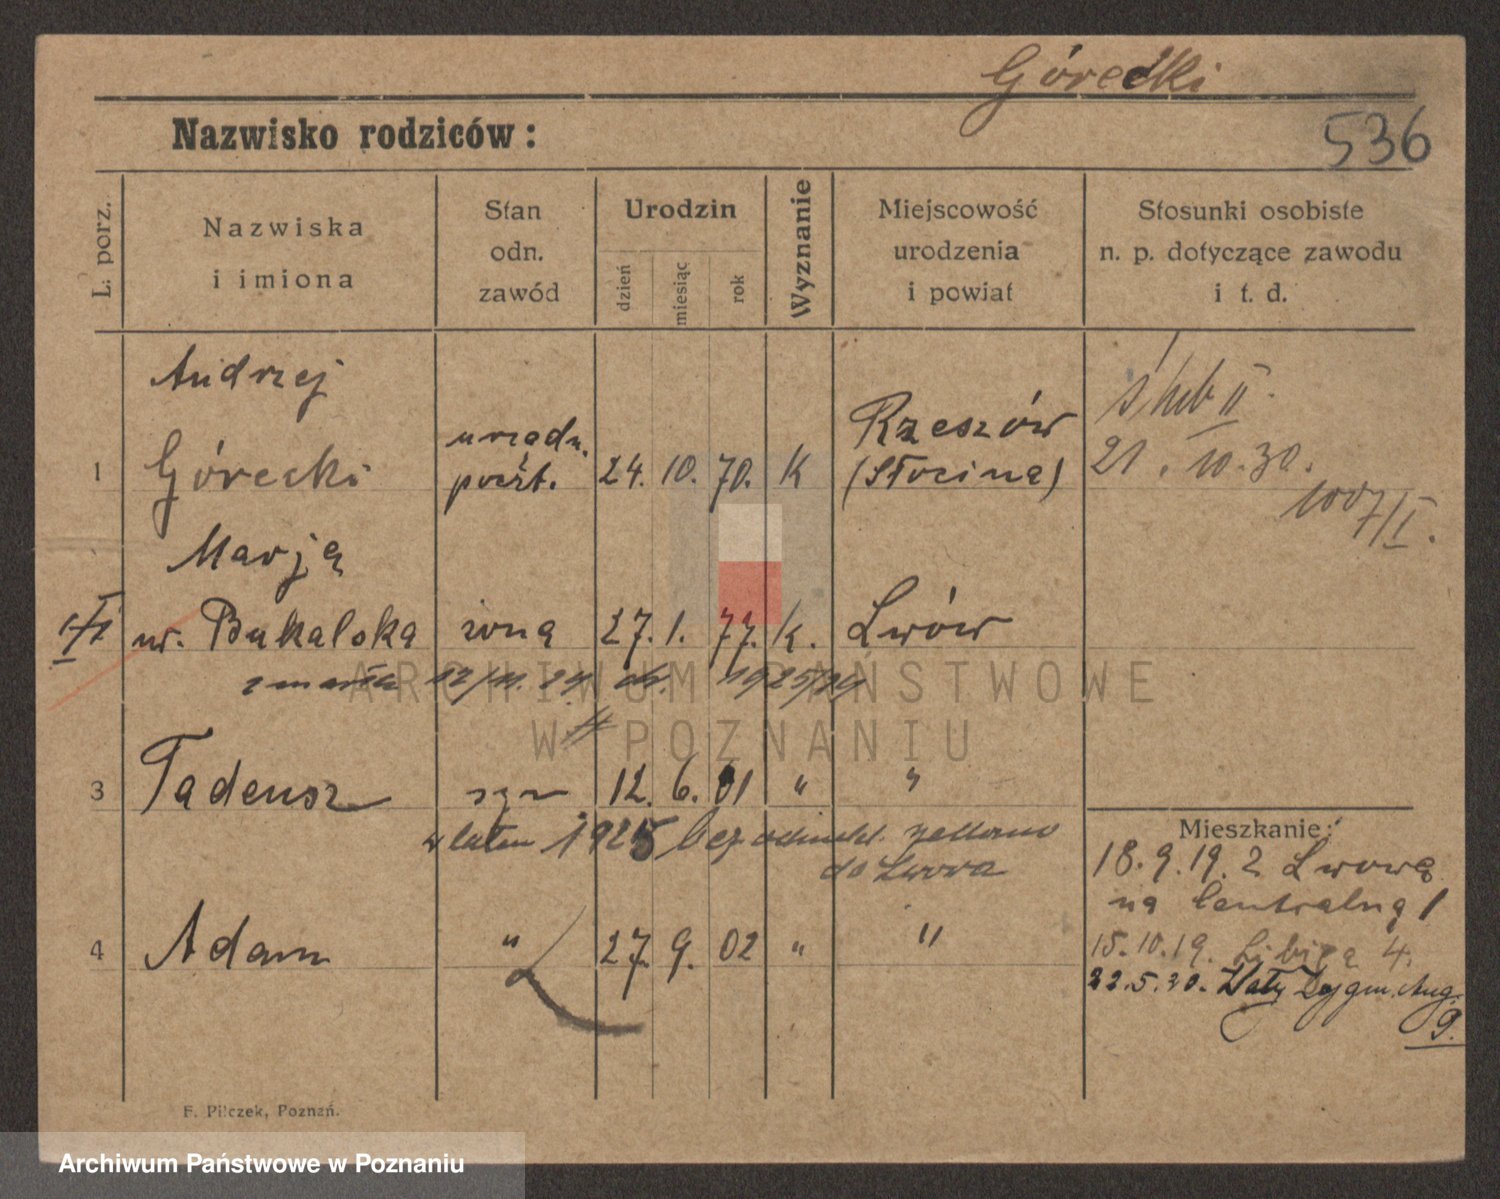 Górecki
Nazwisko rodziców:
536
L. porz.
Nazwiska
i imiona
Stan
odn.
zawód
Urodzin
dzień
miesiąc
rok
Wyznanie
Miejscowość
urodzenia
i powiat
Stosunki osobiste
n. p. dotyczące zawodu
i t. d.
Andrzej
1 Górecki urzędn. poczt. 24. 10. 70. K Rzeszów (Słocina)
II
21. 10. 30.
1007/I.
Marja
ur. Bukalska żona 27. 1. 77. K. Lwów
zmarła 12/11. 24. 1925/24
ARCHIWUM PAŃSTWOWE
W POZNANIU
3 Tadeusz syn 12. 6. 01 " "
w latem 1925 bez
do Lwowa
4 Adam " 27. 9. 02 " "
Mieszkanie:
18. 9. 19. z Lwowa
na Centralna 1
15. 10. 19. Libiga 4.
22. 5. 20. Wały Zygm. Aug.
9.
F. Pilczek, Poznań.
Archiwum Państwowe w Poznaniu